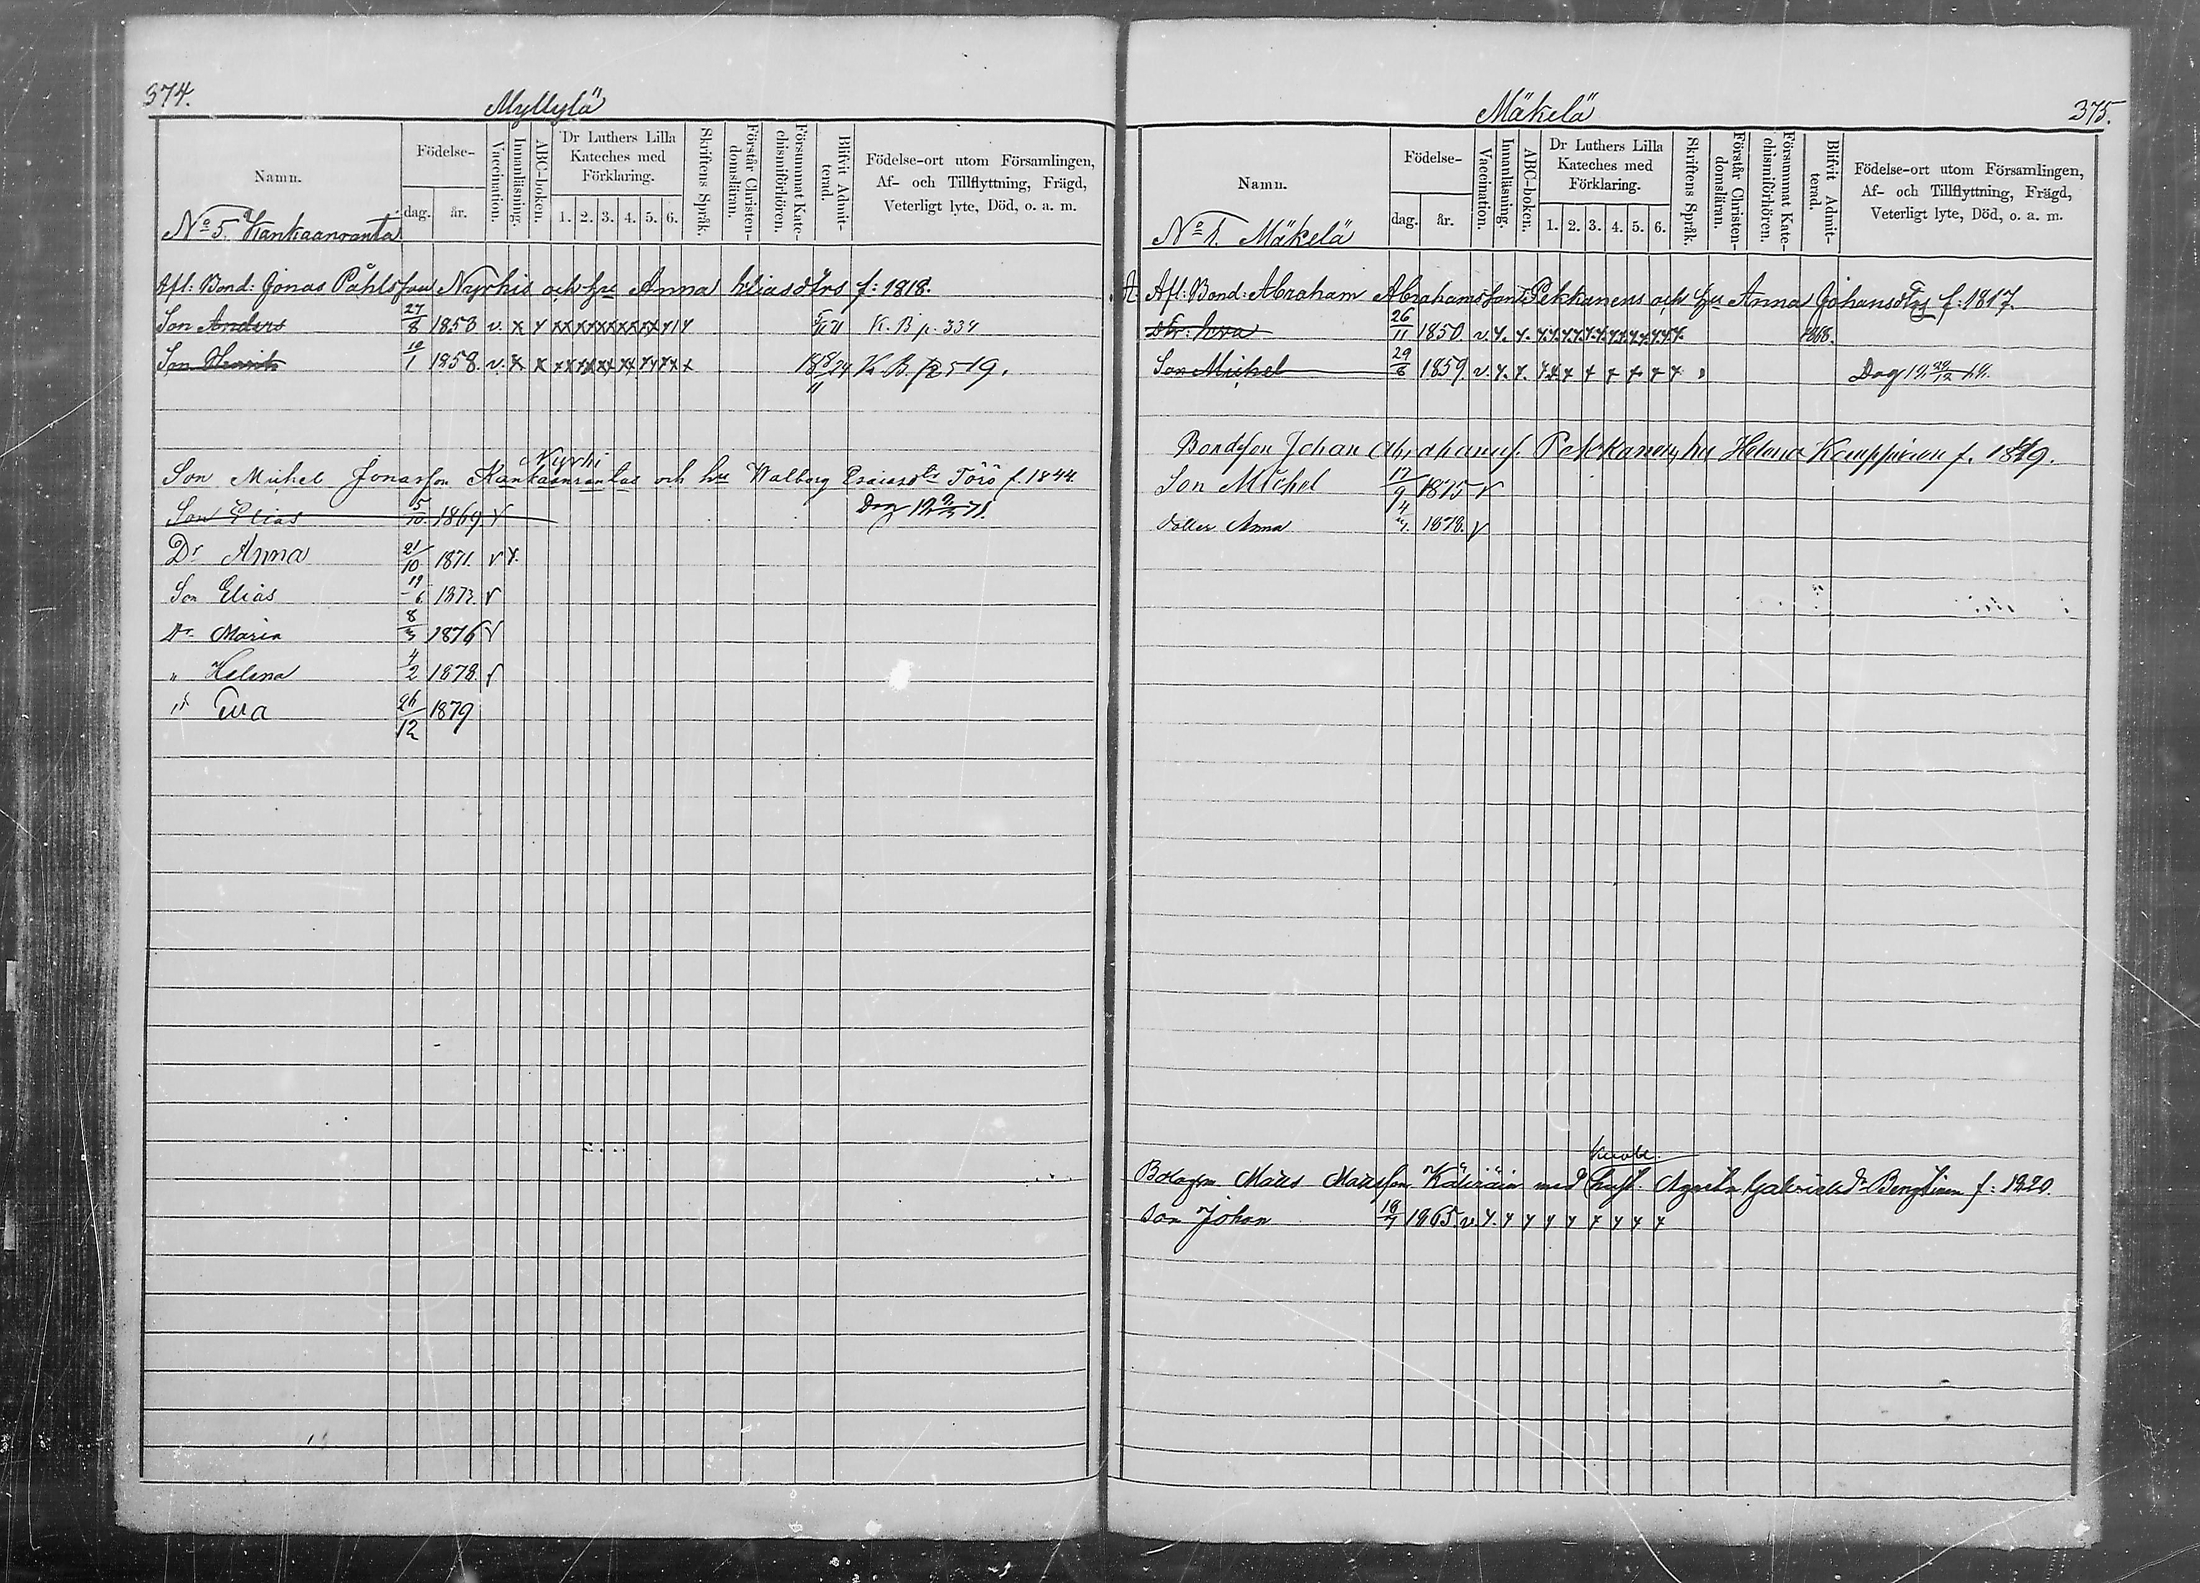 374.
Myllylä
Namn.
Födelse-
dag.
år.
Vaccination.
Innanläsning.
ABC-boken.
Dr Luthers Lilla Kateches med Förklaring.
1. 2. 3. 4. 5. 6.
Skriftens Språk.
Förstår Christen-domsläran.
Försummat Kate-chismiförhören.
Blifvit Admit-terad.
Födelse-ort utom Församlingen,
Af- och Tillflyttning, Frägd,
Veterligt lyte, Död, o. a. m.
No 5. Kankaanranta
Afl: Bond: Jonas Påhlsson Nyrhis och hu Anna Eliasdtrs f: 1818.
Son Anders 27/8 1853 v. x x xxxxxxxxxx K. B p. 334
Son 10/1 1858. v. x x K B. p 519.
Nyrhi
Son Mickel Jonasson Kankaanrantas och hu Walborg Esaiasdtr Törö f. 1844.
Son Elias 5/10. 1869. v Dog 12 2/3 71.
Dr Anna 21/10 1871. v x.
Son Elias 19/6 1873. v
Dr Maria 8/3 1876 v
" Helena 4/2 1878. v
" Eva 26/12 1879
375.
Mäkelä
Namn.
Födelse-
dag.
år.
Vaccination.
Innanläsning.
ABC-boken.
Dr Luthers Lilla Kateches med Förklaring.
1. 2. 3. 4. 5. 6.
Skriftens Språk.
Förstår Christen-domsläran.
Försummat Kate-chismiförhören.
Blifvit Admit-terad.
Födelse-ort utom Församlingen,
Af- och Tillflyttning, Frägd,
Veterligt lyte, Död, o. a. m.
No 1. Mäkelä
Afl: Bond: Abraham Abrahamsson Pekkanens och hu Anna Johansdtrs f: 1817.
Dtr: Eva 26/11 1850. v. x. x. 1868.
Son Mickel 29/6 1859. v. x. x. Dog
Bondeson Johan Abrahams. Pekkanens hu Helena Kauppinen f. 1849.
Son Michel 17/9 1875 v
dotter Anna 4/7. 1878. v
Bolagsm Mats Matsson Käkräin med Agneta Gabrielsdr Bengtinen f: 1820.
son Johan 18/7 1865 v x. x x x x x x x x